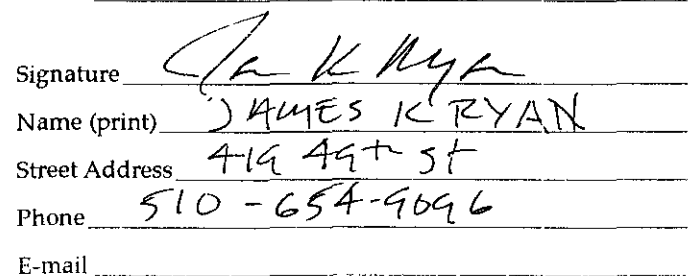 Signature Ja K Rya
Name (print) JAMES K RYAN
Street Address 419 49th st
Phone 510-654-9096
E-mail